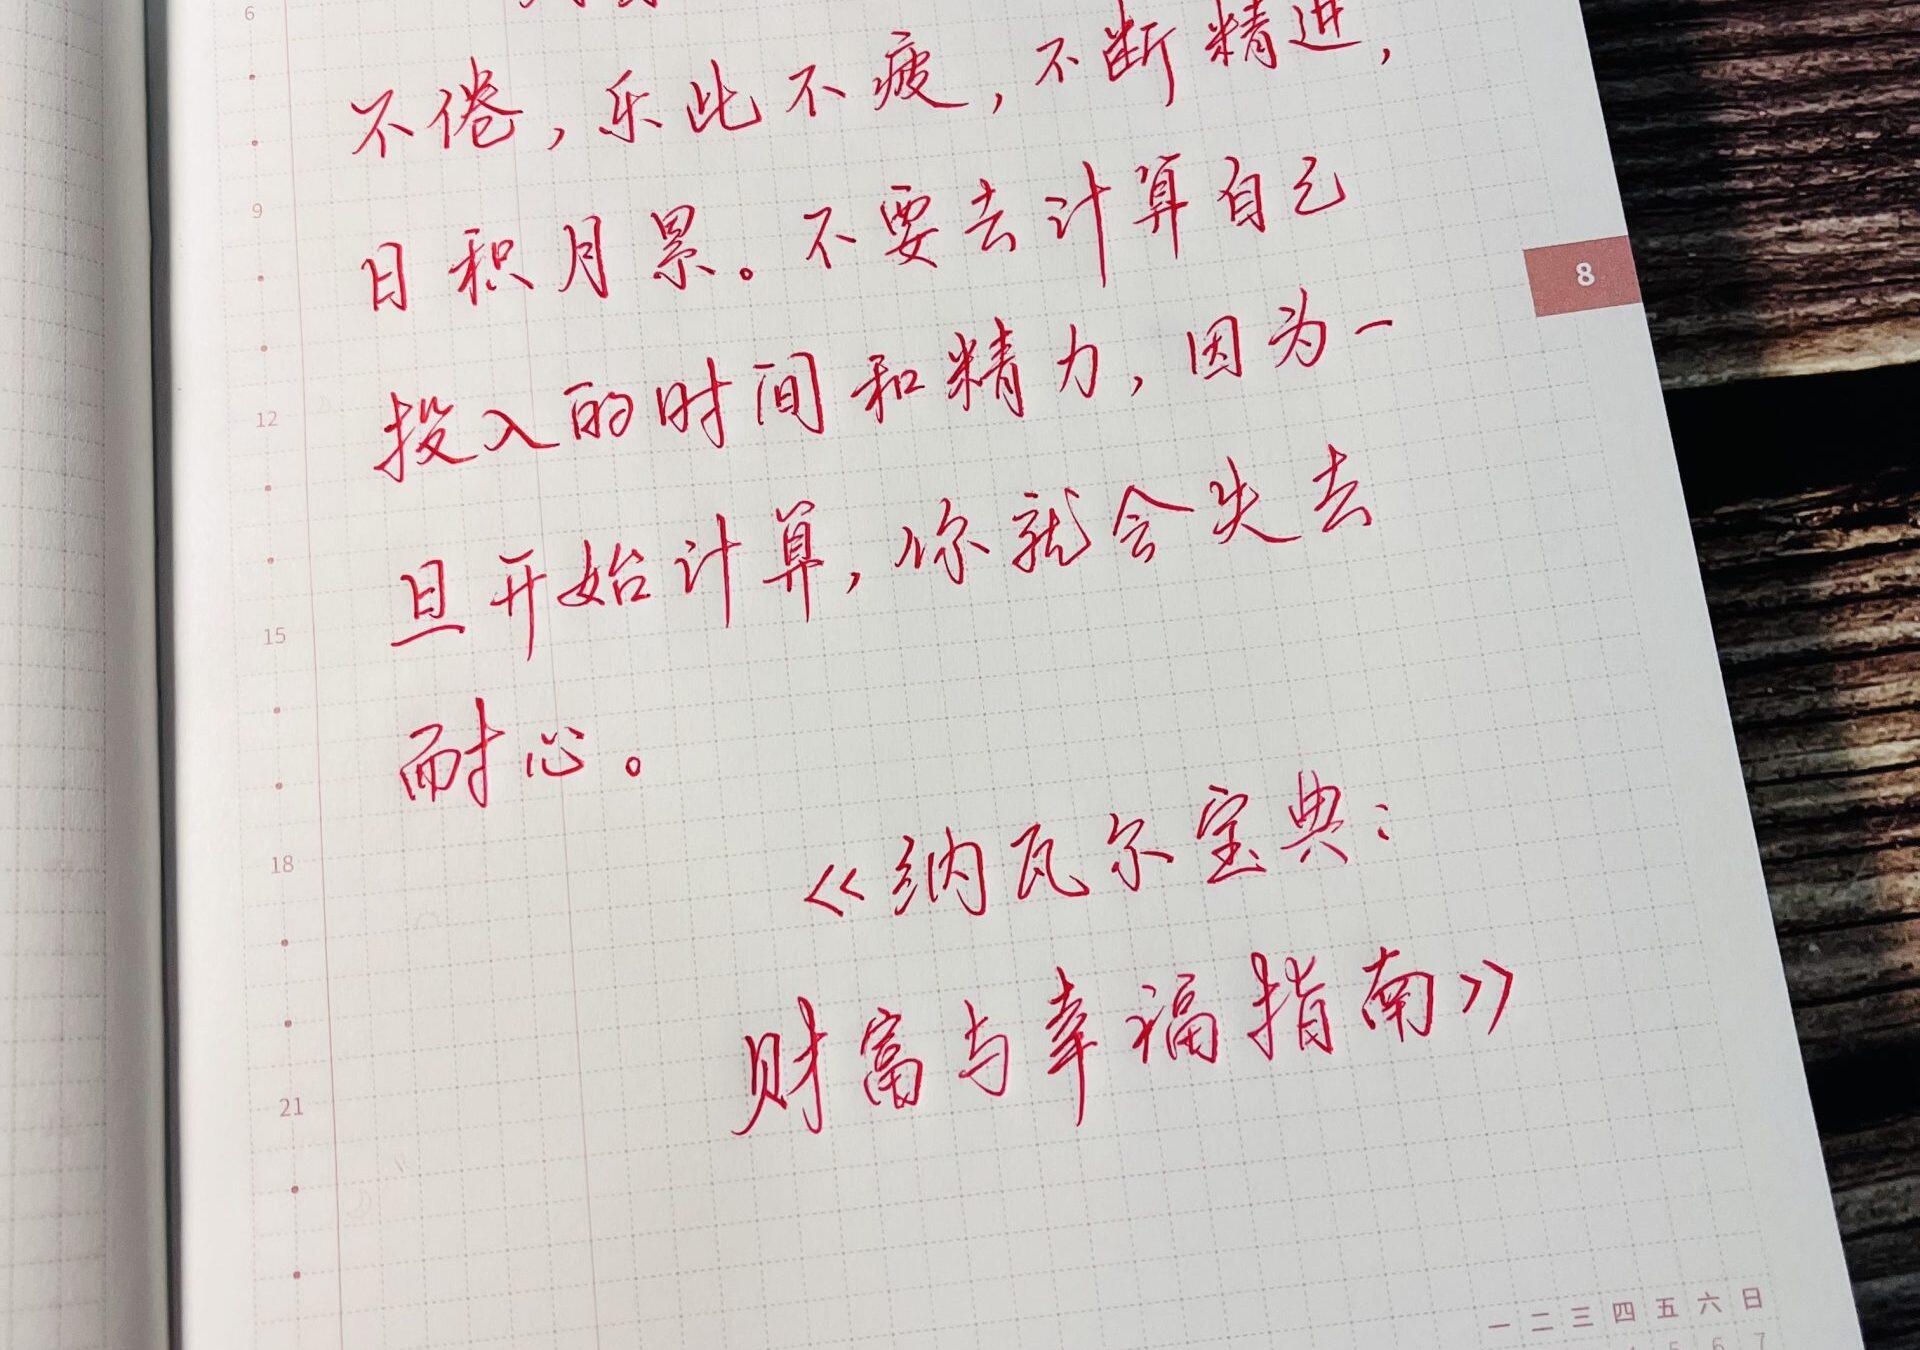 6
不倦，乐此不疲，不断精进，
9
日积月累。不要去计算自己
8
投入的时间和精力，因为一
12
旦开始计算，你就会失去
15
耐心。
18
《纳瓦尔宝典：
财富与幸福指南》
21
一 二 三 四 五 六 日
5 6 7